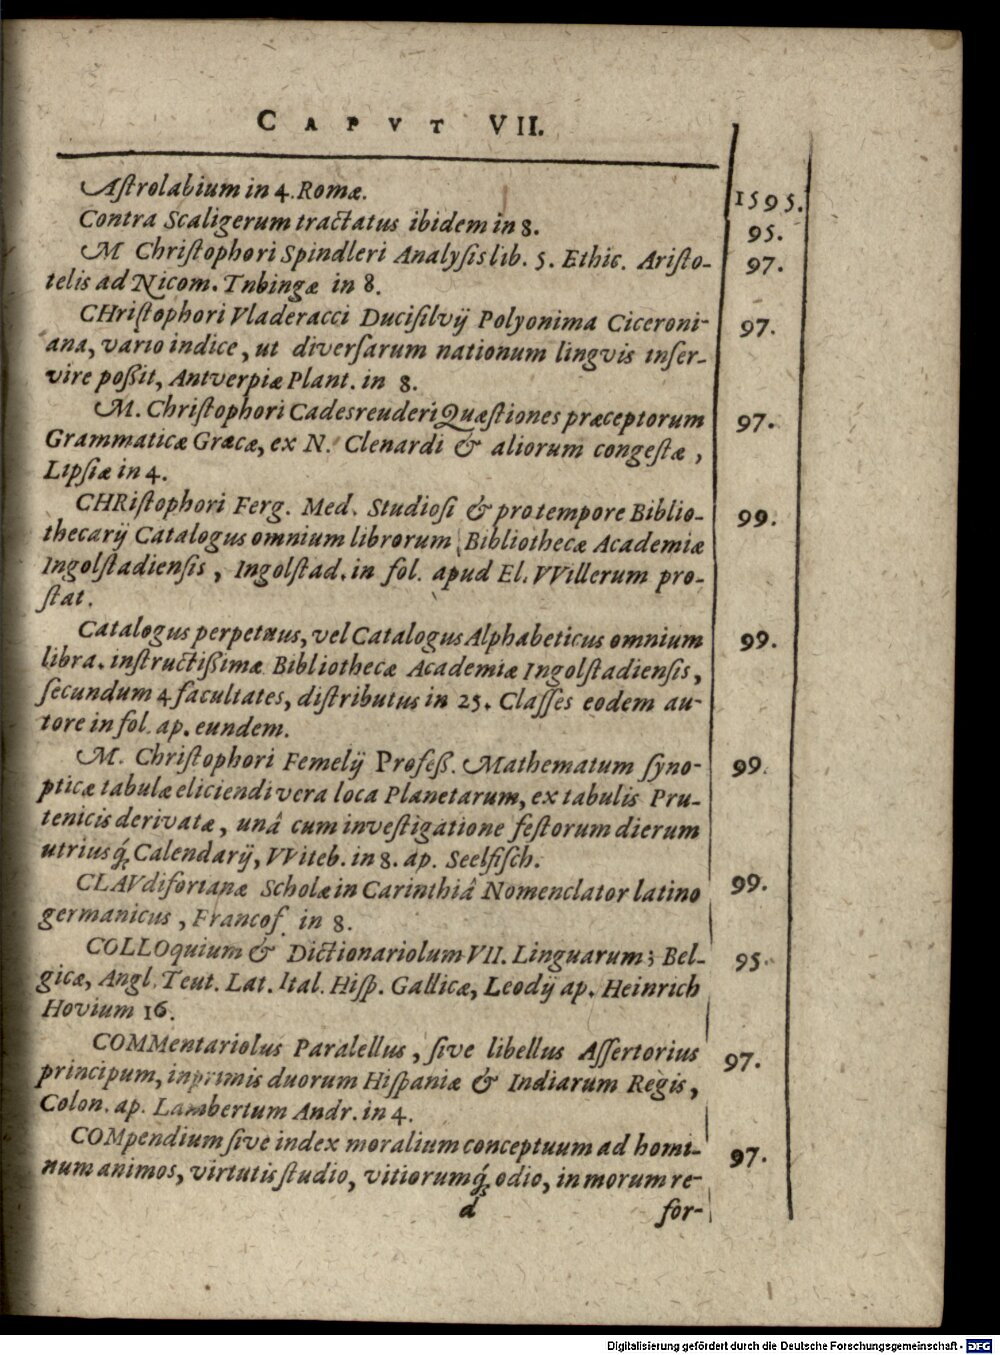 CAPVT VII.
Aſtrolabium in 4. Romæ. 1595.
Contra Scaligerum tractatus ibidem in 8. 95.
M Chriſtophori Spindleri Analyſis lib. 5. Ethic. Ariſto- 97.
telis ad Nicom. Tnbingæ in 8.
CHriſtophori Vladeracci Duciſilvij Polyonima Ciceroni- 97.
ana, vario indice, ut diverſarum nationum lingvis inſer-
vire poßit, Antverpiæ Plant. in 8.
M. Chriſtophori Cadesreuderi Quæſtiones præceptorum 97.
Grammaticæ Græcæ, ex N. Clenardi & aliorum congeſtæ,
Lipſiæ in 4.
CHRiſtophori Ferg. Med. Studioſi & pro tempore Biblio- 99.
thecarij Catalogus omnium librorum Bibliothecæ Academiæ
Ingolſtadienſis, Ingolſtad. in fol. apud El. VVillerum pro-
ſtat.
Catalogus perpetuus, vel Catalogus Alphabeticus omnium 99.
libra. inſtructißimæ Bibliothecæ Academiæ Ingolſtadienſis,
ſecundum 4 facultates, diſtributus in 25. Claſſes eodem au-
tore in fol. ap. eundem.
M. Chriſtophori Femelij Profeß. Mathematum ſyno- 99.
pticæ tabulæ eliciendi vera loca Planetarum, ex tabulis Pru-
tenicis derivatæ, unâ cum inveſtigatione feſtorum dierum
utriusq́; Calendarij, VViteb. in 8. ap. Seelfiſch.
CLAVdiforianæ Scholæ in Carinthiâ Nomenclator latino 99.
germanicus, Francof. in 8.
COLLOquium & Dictionariolum VII. Linguarum; Bel- 95.
gicæ, Angl. Teut. Lat. Ital. Hiſp. Gallicæ, Leodij ap. Heinrich
Hovium 16.
COMMentariolus Paralellus, ſive libellus Aſſertorius 97.
principum, inprimis duorum Hiſpaniæ & Indiarum Regis,
Colon. ap. Lambertum Andr. in 4.
COMpendium ſive index moralium conceptuum ad homi- 97.
num animos, virtutis ſtudio, vitiorumq́; odio, in morum re-
d for-
Digitalisierung gefördert durch die Deutsche Forschungsgemeinschaft - DFG